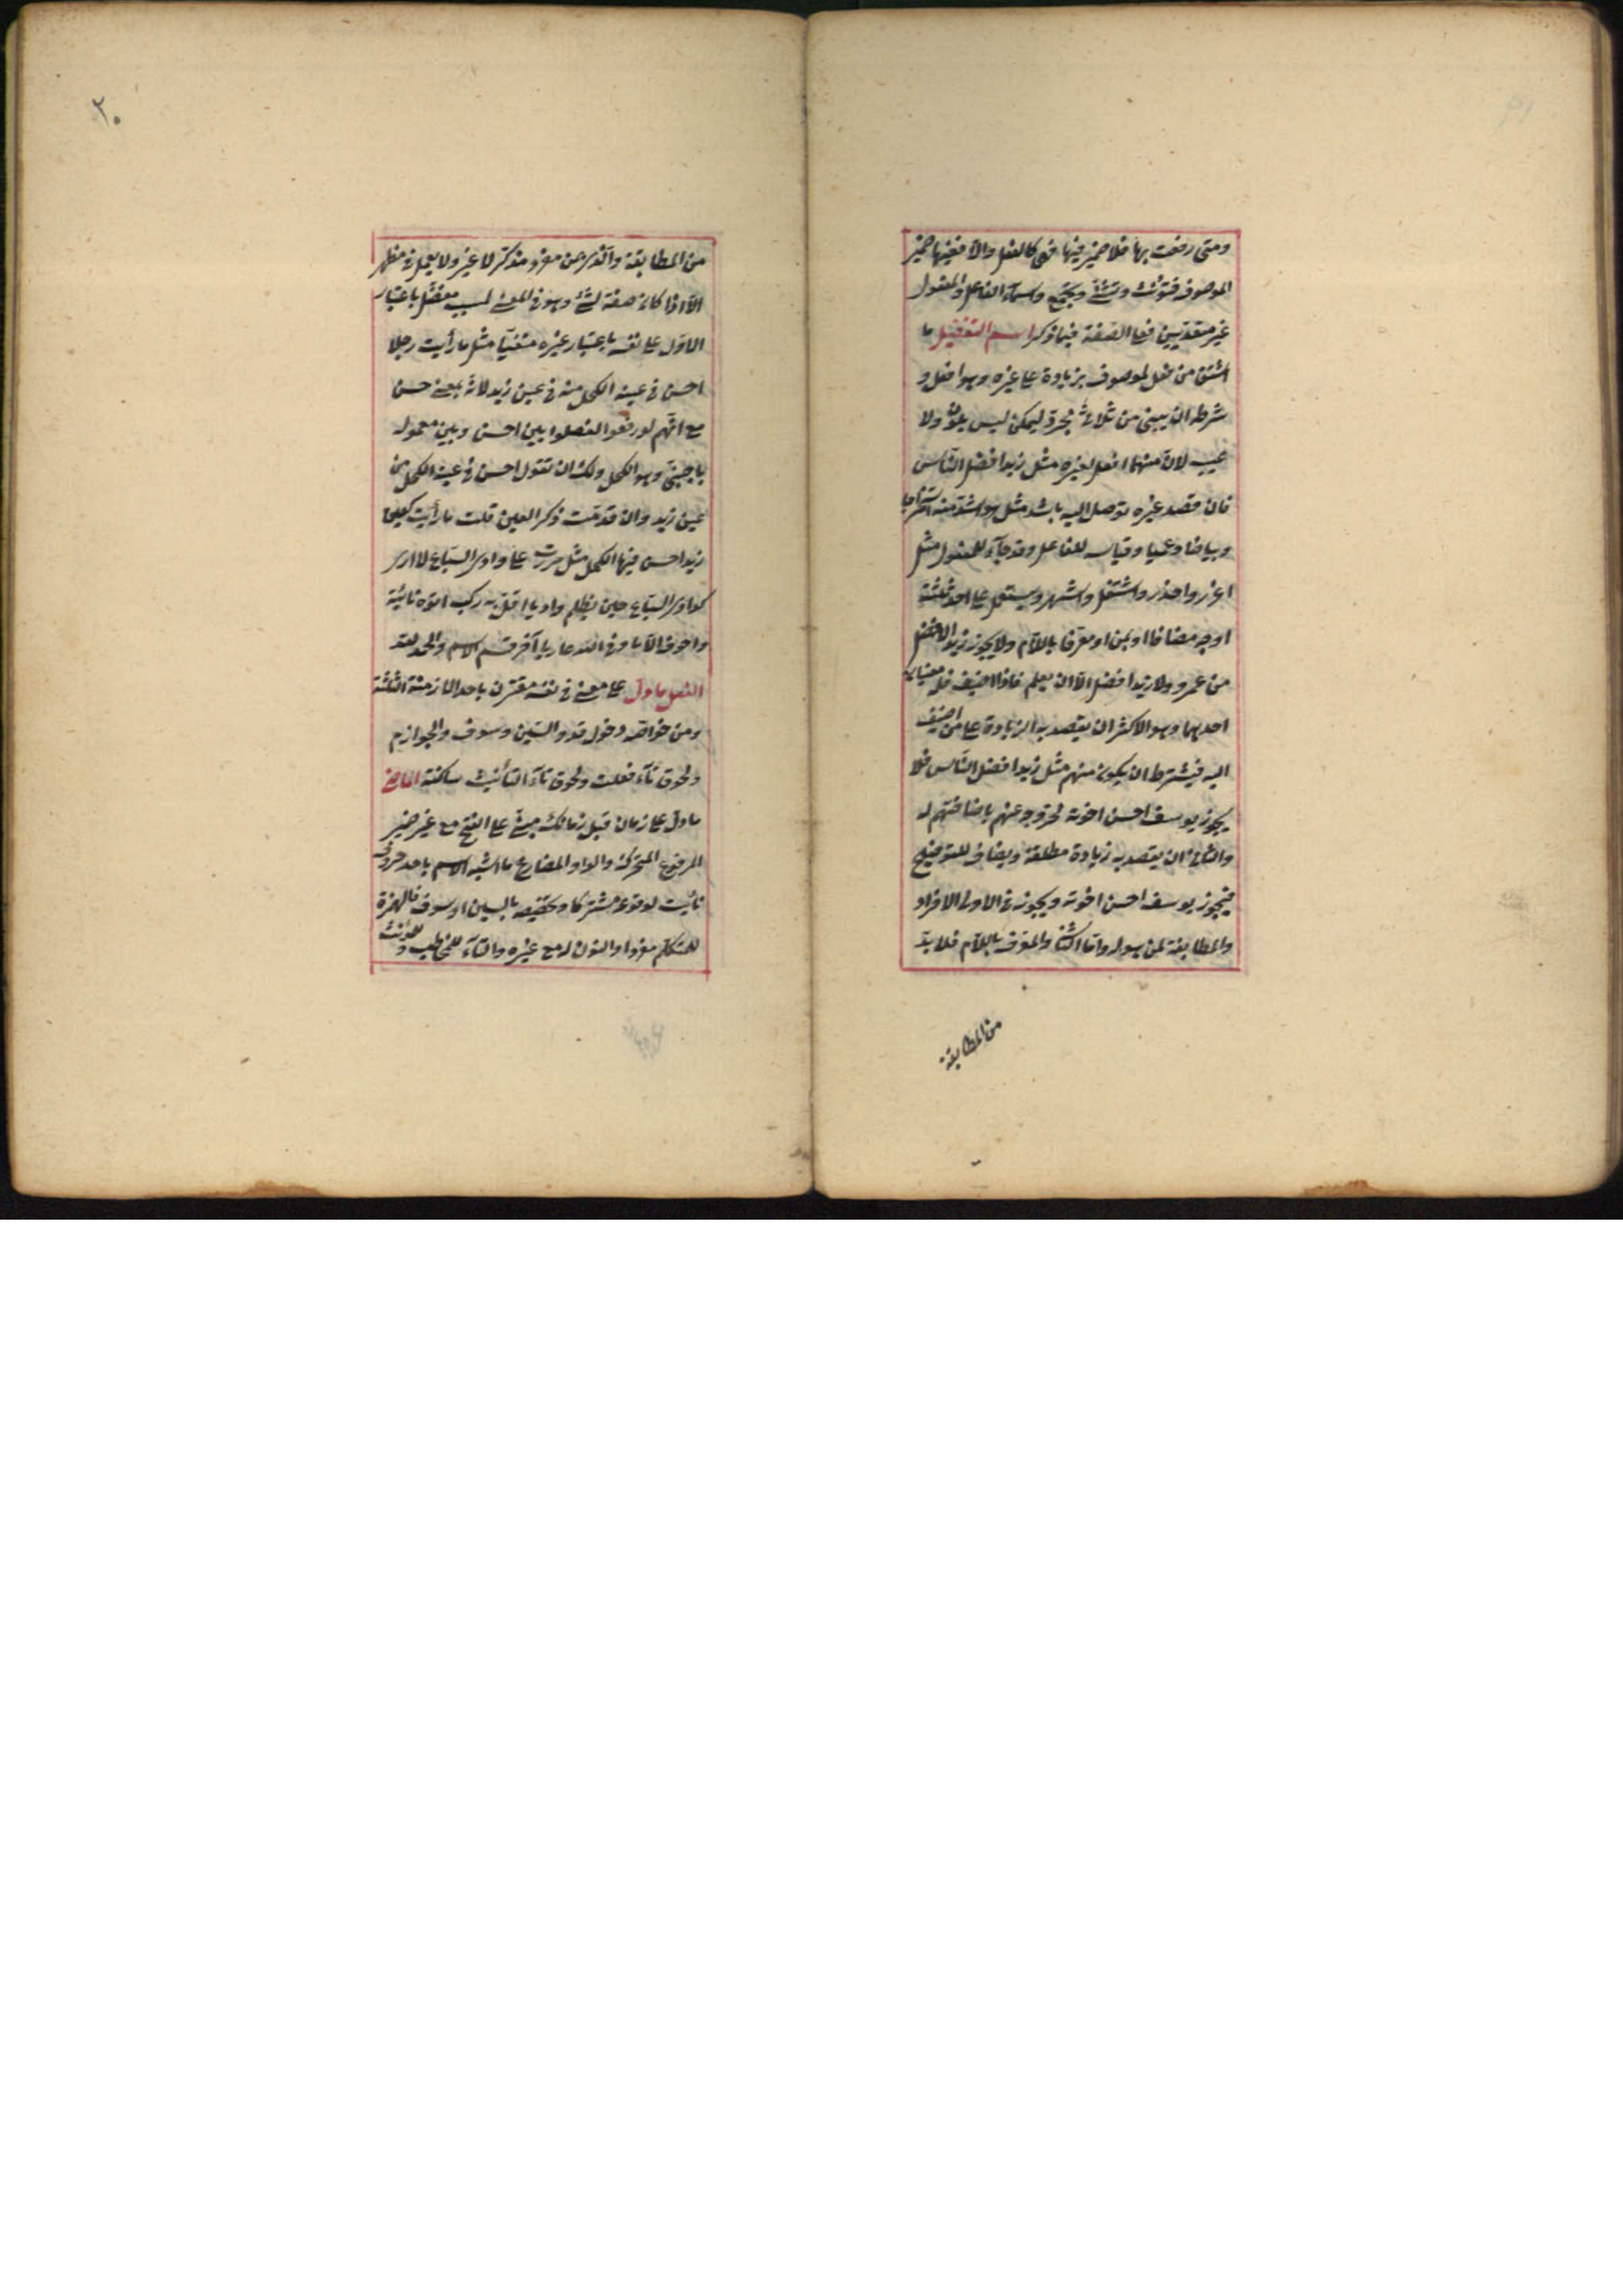 ومتى رفعت بها فلا ضمير فيها فهي كالفعل والا ففيها ضمير
الموصوف فتؤنث وتثنى وتجمع واسماء الفاعل والمفعول
غير متعديين مع الصفة فيما ذكر اسم التفضيل ما
اشتق من فعل لموصوف بزيادة على غيره وهو افعل و
شرطه ان يبنى من ثلاثى مجرد ليمكن ليس بلون ولا
عيب لان منهما افعل لغيره مثل زيد افضل الناس
فان قصد غيره توصل اليه باشد مثل هو اشد منه استخراجا
وبياضا وعميا وقياسه للفاعل وقد جاء للمفعول مثل
اعذر واشغل واشهر ويستعمل على احد ثلثة
اوجه مضافا او بمن او معرفا باللام ولا يجوز زيد الافضل
من عمرو ولا زيد افضل الا ان يعلم فاذا اضيف فله معنيان
احدهما وهو الاكثر ان يقصد به الزيادة على من اضيف
اليه فيشترط ان يكون منهم مثل زيد افضل الناس فلا
يجوز يوسف احسن اخوته لخروجه عنهم باضافتهم له
والثانى ان يقصد به زيادة مطلقة ويضاف للتوضيح
فيجوز يوسف احسن اخوته ويجوز فى الاول الافراد
والمطابقة لمن هو له واما الثانى والمعرف باللام فلا بد
من المطابقة
٢٠
من المطابقة والذى بمن مفرد مذكر لا غير ولا يعمل فى مظهر
الا اذا كان صفة لشئ وهو فى المعنى لمسبب مفضل باعتبار
الاول على نفسه باعتبار غيره منفيا مثل ما رأيت رجلا
احسن فى عينه الكحل منه فى عين زيد لانه بمعنى حسن
مع انهم لو رفعوا لفصلوا بين احسن وبين معموله
باجنبى وهو الكحل ولك ان تقول احسن فى عينه الكحل من
عين زيد وان قدمت ذكر العين قلت ما رأيت كعين
زيد احسن فيها الكحل مثل مررت على وادى السباع لا ارى
كوادى السباع حين يظلم واديا اقل به ركب اتوه تائية
واخوف الا ما وقى الله ساريا آخر قسم الاسم والحمد لله
الفعل ما دل على معنى فى نفسه مقترن باحد الازمنة الثلثة
ومن خواصه دخول قد والسين وسوف والجوازم
ولحوق تاء فعلت ولحوق تاء التأنيث ساكنة الماضى
ما دل على زمان قبل زمانك مبنى على الفتح مع غير ضمير
المرفوع المتحركة والواو المضارع ما اشبه الاسم باحد حروف
نأيت لوقوعه مشتركا وتخصيصه بالسين او سوف فالهمزة
للمتكلم مفردا والنون له مع غيره والتاء للمخاطب و للمؤنث